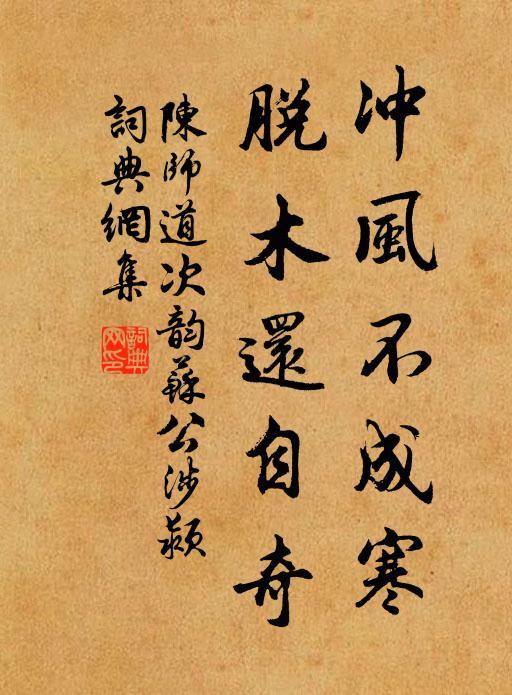 冲風不成寒
脫木還自奇
陳師道次韵蘇公涉颍
詞典網集
詞典網印